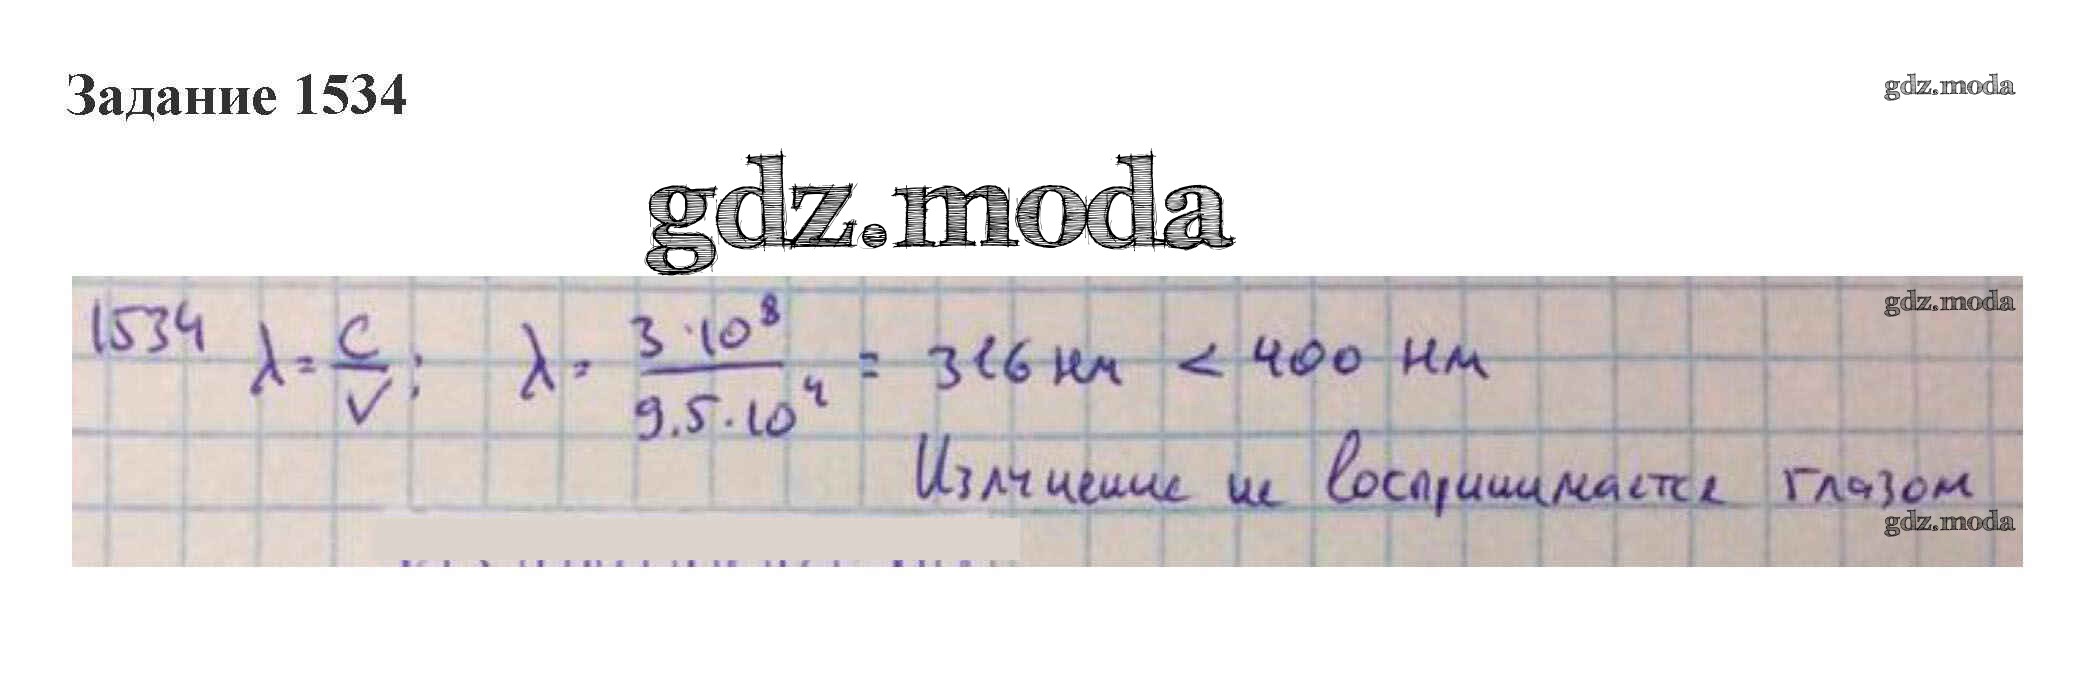 Задание 1534
gdz.moda
gdz.moda
gdz.moda
1534 λ = c/ν; λ = 3·10⁸/9.5·10⁴ = 316 нм < 400 нм
Излучение не воспринимается глазом
gdz.moda